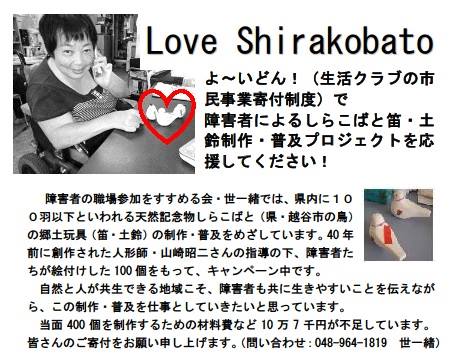 Love Shirakobato
よ～いどん！（生活クラブの市
民事業寄付制度）で
障害者によるしらこばと笛・土
鈴制作・普及プロジェクトを応
援してください！
障害者の職場参加をすすめる会・世一緒では、県内に１０
０羽以下といわれる天然記念物しらこばと（県・越谷市の鳥）
の郷土玩具（笛・土鈴）の制作・普及をめざしています。40 年
前に創作された人形師・山崎昭二さんの指導の下、障害者た
ちが絵付けした 100 個をもって、キャンペーン中です。
自然と人が共生できる地域こそ、障害者も共に生きやすいことを伝えなが
ら、この制作・普及を仕事としていきたいと思っています。
当面 400 個を制作するための材料費など 10 万 7 千円が不足しています。
皆さんのご寄付をお願い申し上げます。（問い合わせ：048-964-1819　世一緒）